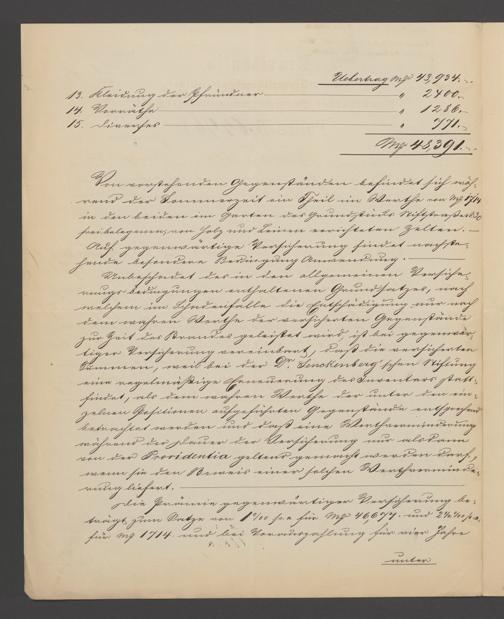 Uebertrag Mk 43,934.-
13. Kleidung der Pfründner " 2400.-
14. Vorräthe " 1286.-
15. Diverses " 771.-
Mk 48,391.-
Von vorstehenden Gegenständen befindet sich wäh-
rend der Sommerzeit ein Theil im Werthe von Mk 1714
in den beiden im Garten des Grundstücks Stiftstraße
freibelegenen, von Holz und Leinen errichteten Zelten.
Auf gegenwärtige Versicherung findet nachste-
hende besondere Bedingung Anwendung:
Unbeschadet des in den allgemeinen Versiche-
rungsbedingungen enthaltenen Grundsatzes, nach
welchem im Schadenfalle die Entschädigung nur nach
dem wahren Werthe der versicherten Gegenstände
zur Zeit des Brandes geleistet wird, ist bei gegenwär-
tiger Versicherung vereinbart, daß die versicherten
Summen, weil bei der Dr Senckenberg'schen Stiftung
eine regelmäßige Erneuerung des Inventars statt-
findet, als dem wahren Werthe der unter den ein-
zelnen Positionen aufgeführten Gegenstände entsprechend
betrachtet werden und daß eine Werthverminderung
während der Dauer der Versicherung nur alsdann
von der Providentia geltend gemacht werden darf,
wenn sie den Beweis einer solchen Werthverminde-
rung liefert.
Die Prämie gegenwärtiger Versicherung be-
trägt zum Satze von 1 0/00 für Mk 46,677. und
für Mk 1714. und bei Vorauszahlung für vier Jahre
unter